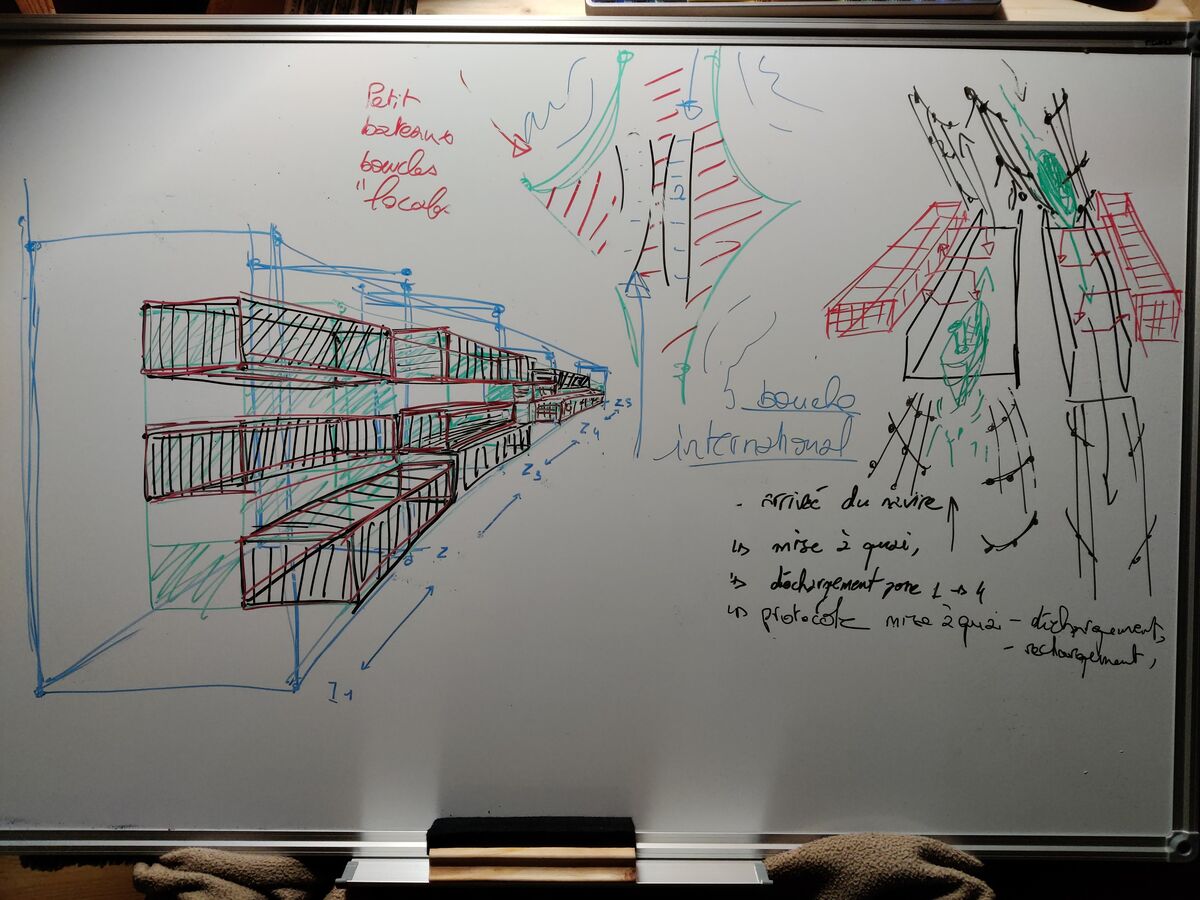 Petit
bateaux
boucles
"locale
2
5 boucle
international
- arrivée du navire
↳ mise à quai,
↳ déchargement zone 1 → 4
↳ protocole mise à quai - déchargement,
- rechargement,
Z5
Z4
Z3
Z
Z1